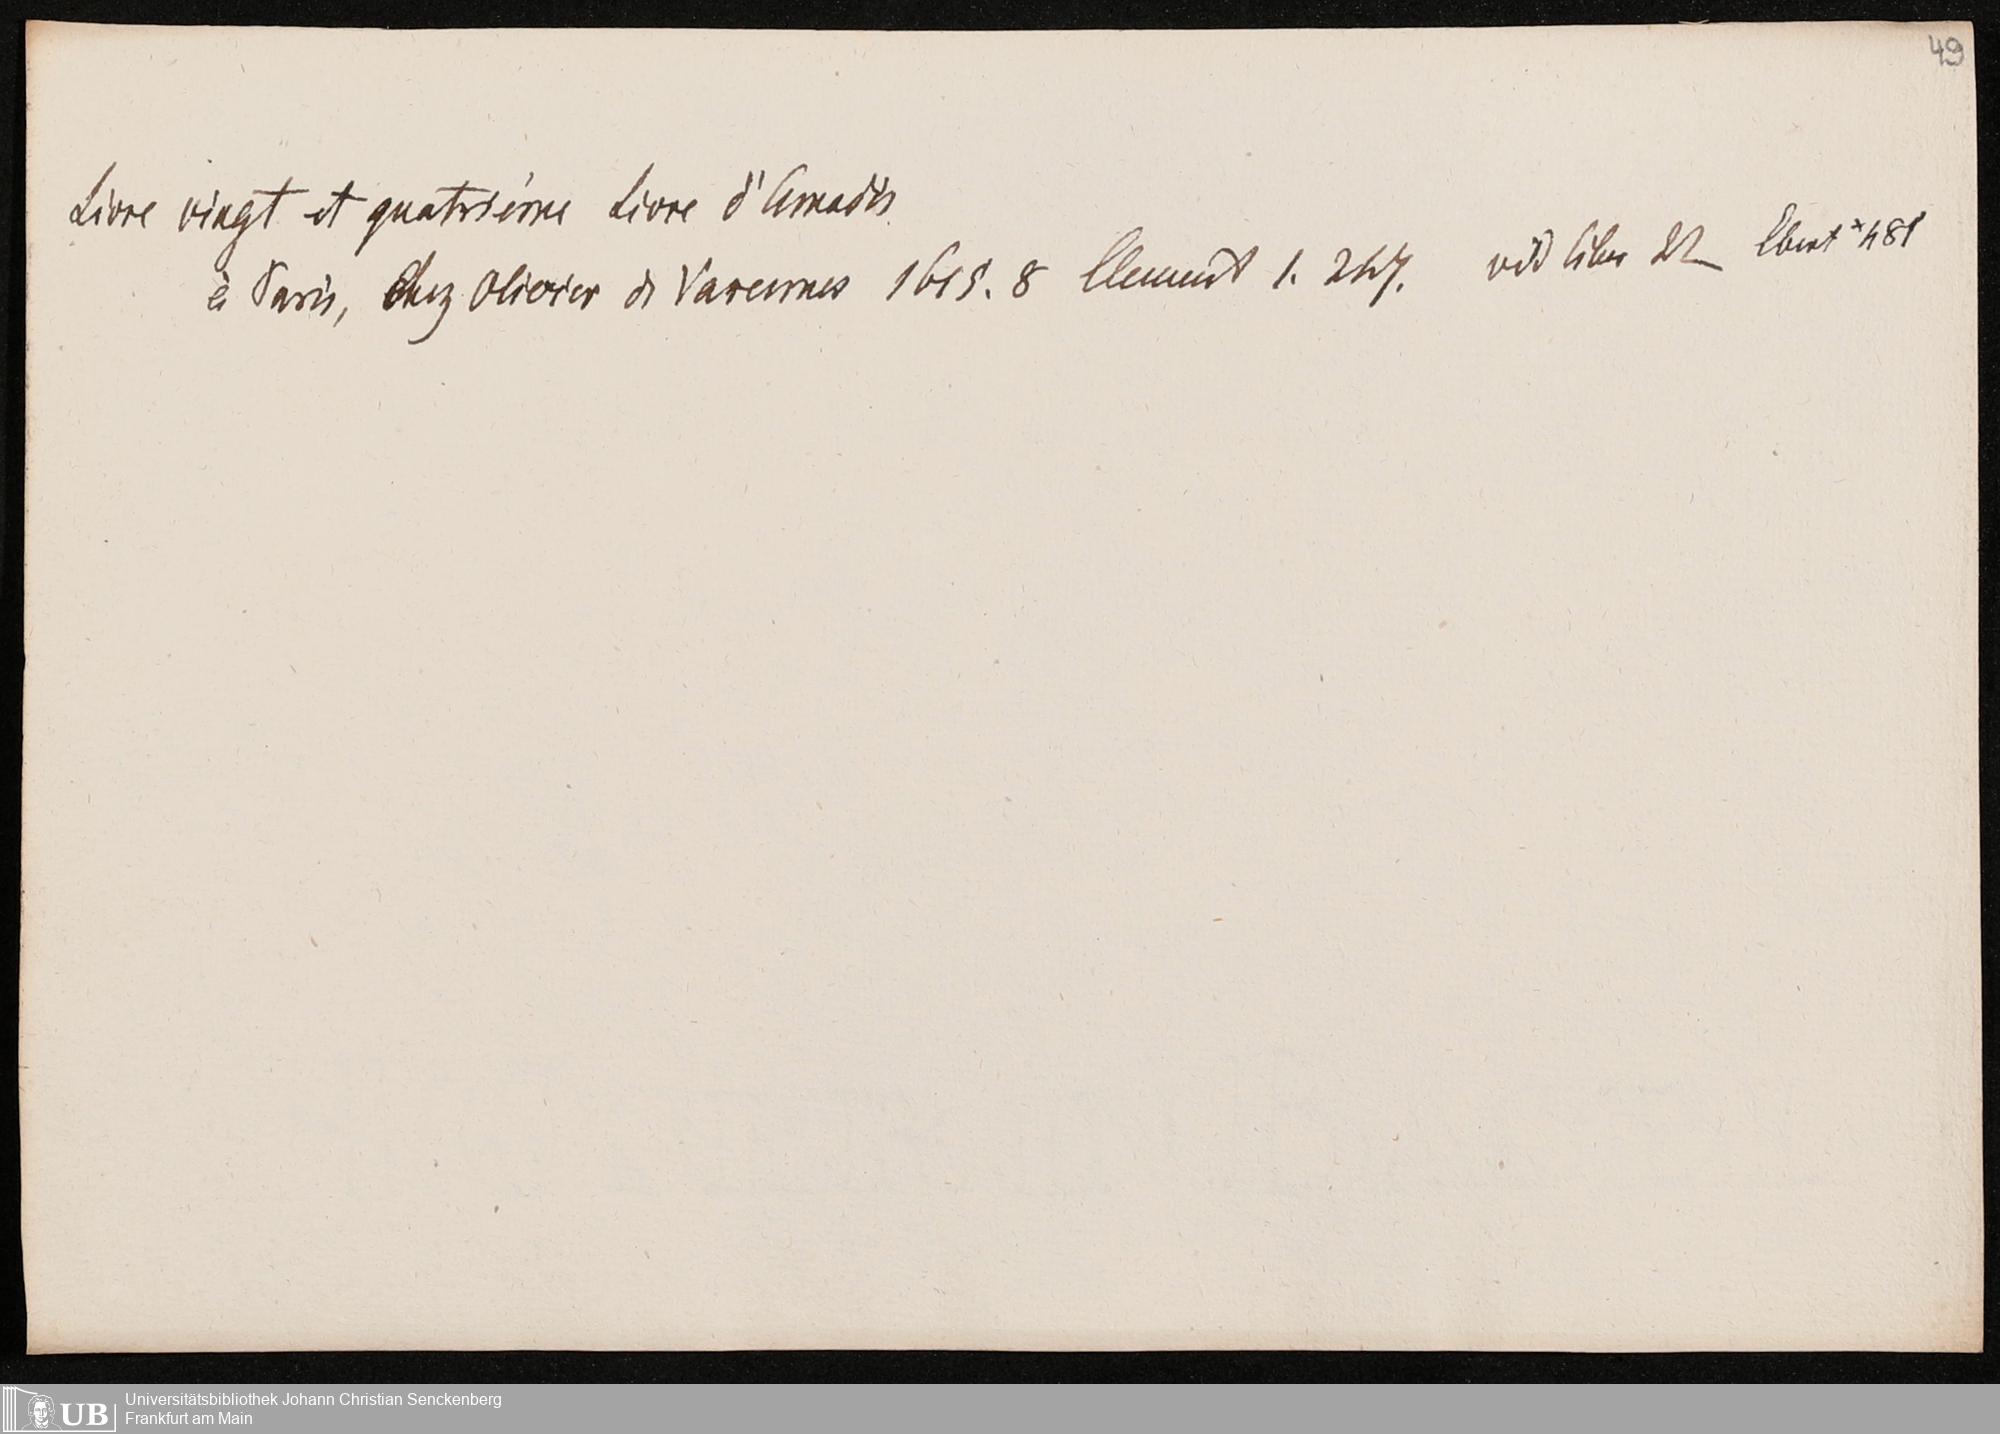 49
Livre vingt et quatriéme Livre d'Amadis
à Paris, Chez Olivier de Varennes 1615. 8 Clement 1. 247. vid liber 22 Ebert * 481
UB
Universitätsbibliothek Johann Christian Senckenberg
Frankfurt am Main